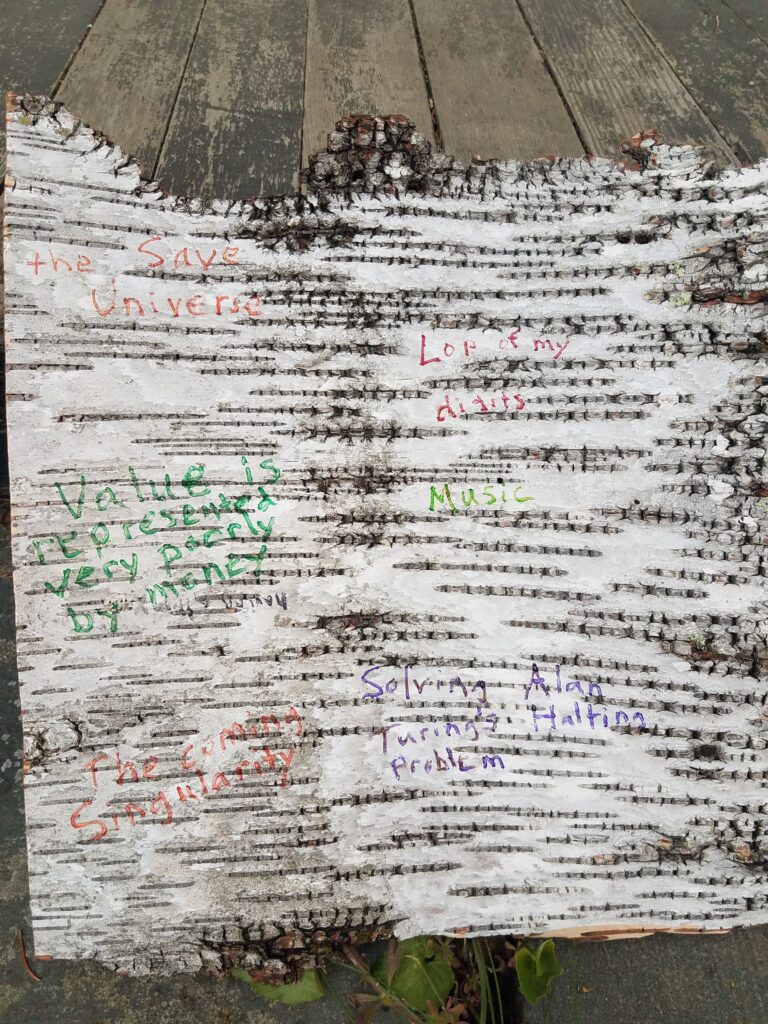 the Save
Universe
Lop of my
digits
Value is
represented
very poorly
by money
Music
Solving Alan
Turing's Halting
problem
The coming
Singularity